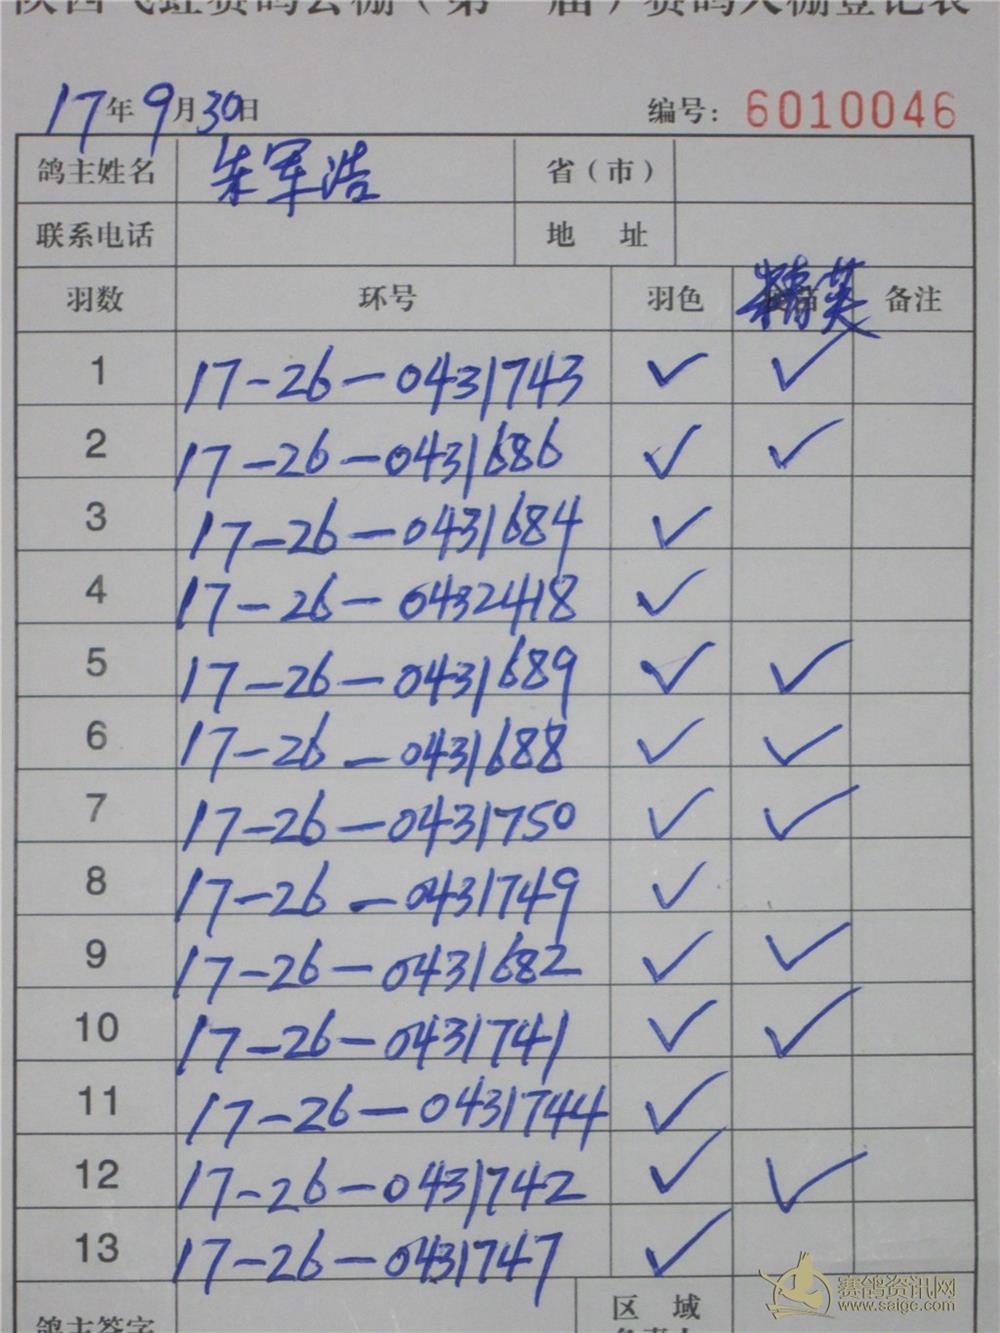 陕西飞虹赛鸽公棚（第 一 届）赛鸽入棚登记表
17年9月30日 编号：6010046
鸽主姓名 朱军浩 省（市）
联系电话 地 址
羽数 环号 羽色 精英 备注
1 17-26-0431743 ✓ ✓
2 17-26-0431686 ✓ ✓
3 17-26-0431684 ✓
4 17-26-0432418 ✓
5 17-26-0431689 ✓ ✓
6 17-26-0431688 ✓ ✓
7 17-26-0431750 ✓ ✓
8 17-26-0431749 ✓
9 17-26-0431682 ✓ ✓
10 17-26-0431741 ✓ ✓
11 17-26-0431744 ✓
12 17-26-0431742 ✓ ✓
13 17-26-0431747 ✓
鸽主签字 区 域
赛鸽资讯网
www.saigc.com